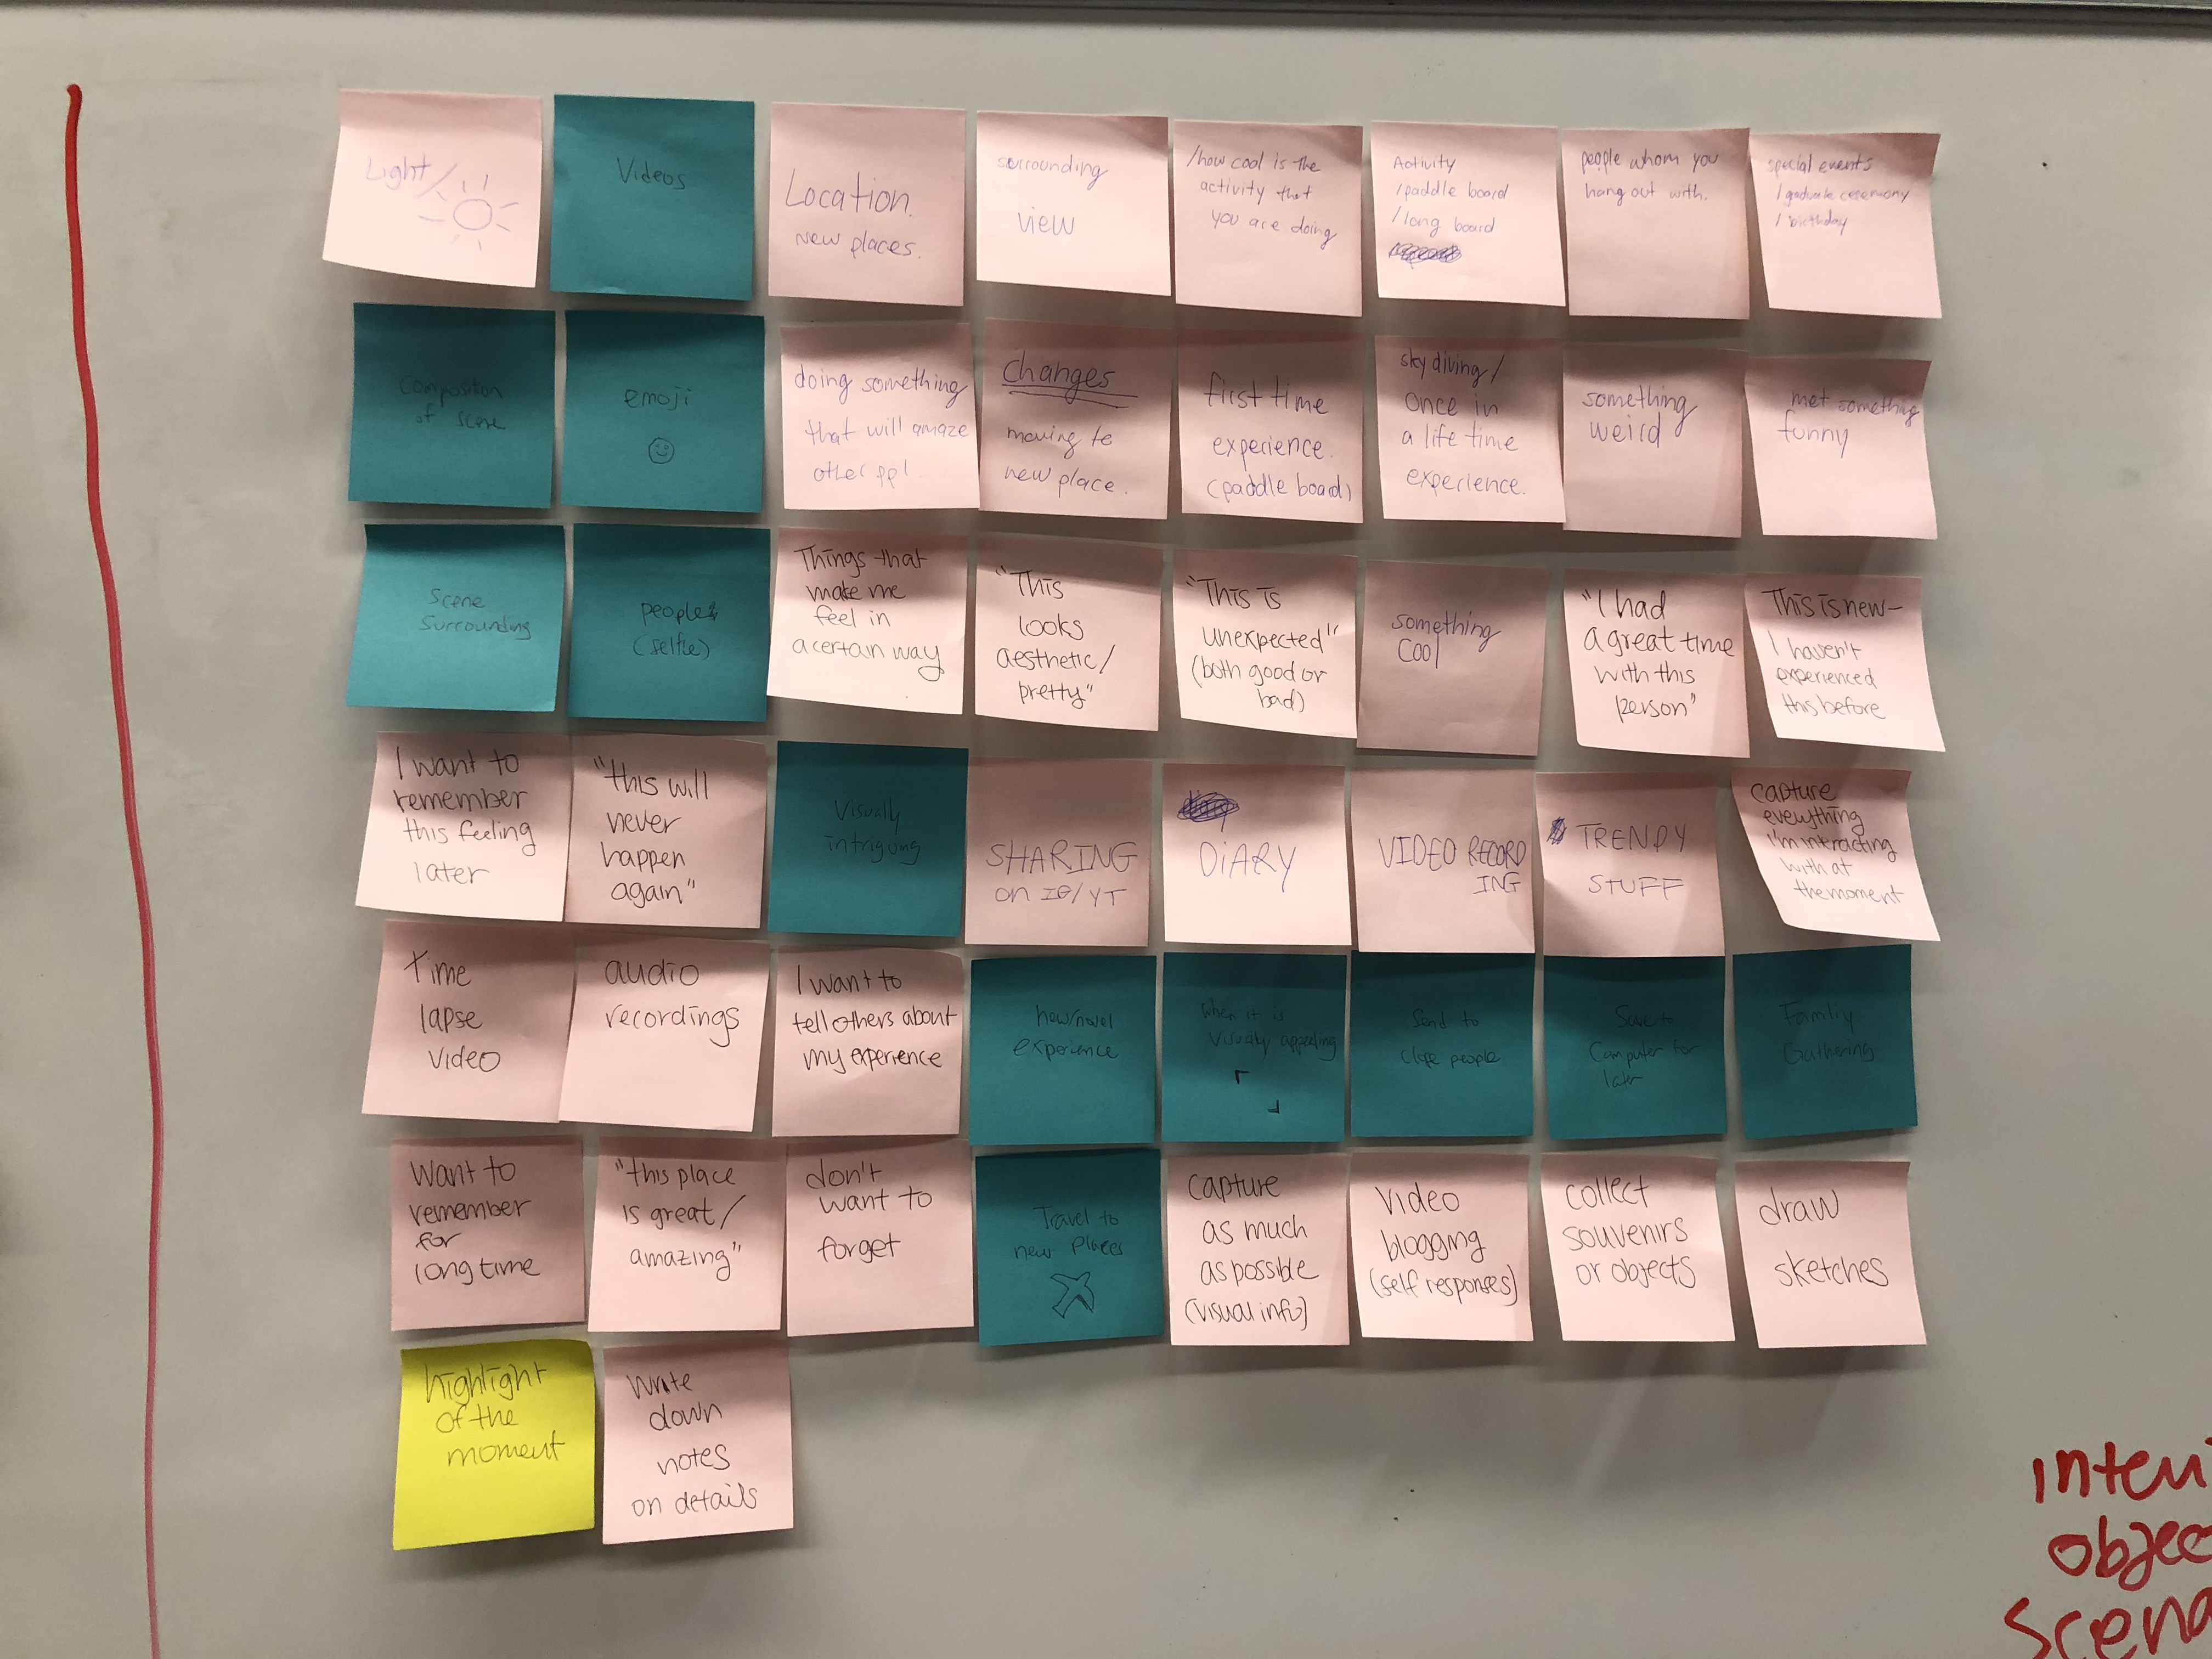 Light/
Videos
Location.
New places.
surrounding
view
/how cool is the
activity that
you are doing
Activity
/paddle board
/long board
people whom you
hang out with.
special events
/graduate ceremony
/birthday
Composition
of scene
emoji
doing something
that will amaze
other ppl.
changes
moving to
new place.
first time
experience.
(paddle board)
sky diving/
once in
a life time
experience.
something
weird
met something
funny
Scene
Surrounding
people
(selfie)
Things that
make me
feel in
a certain way
"This
looks
aesthetic/
pretty"
"This is
unexpected"
(both good or
bad)
something
cool
"I had
a great time
with this
person"
This is new-
I haven't
experienced
this before
I want to
remember
this feeling
later
"this will
never
happen
again"
Visually
intriguing
SHARING
on IG/YT
DiARY
VIDEO RECORD
ING
TRENDY
STUFF
capture
everything
I'm intracting
with at
the moment
Time
lapse
video
audio
recordings
I want to
tell others about
my experience
new/novel
experience
When it is
Visually appealing
Send to
close people
Save to
Computer for
later
Family
Gathering
Want to
remember
for
long time
"this place
is great/
amazing"
don't
want to
forget
Travel to
new places
capture
as much
as possible
(visual info)
Video
blogging
(self responses)
collect
souvenirs
or objects
draw
sketches
highlight
of the
moment
Write
down
notes
on details